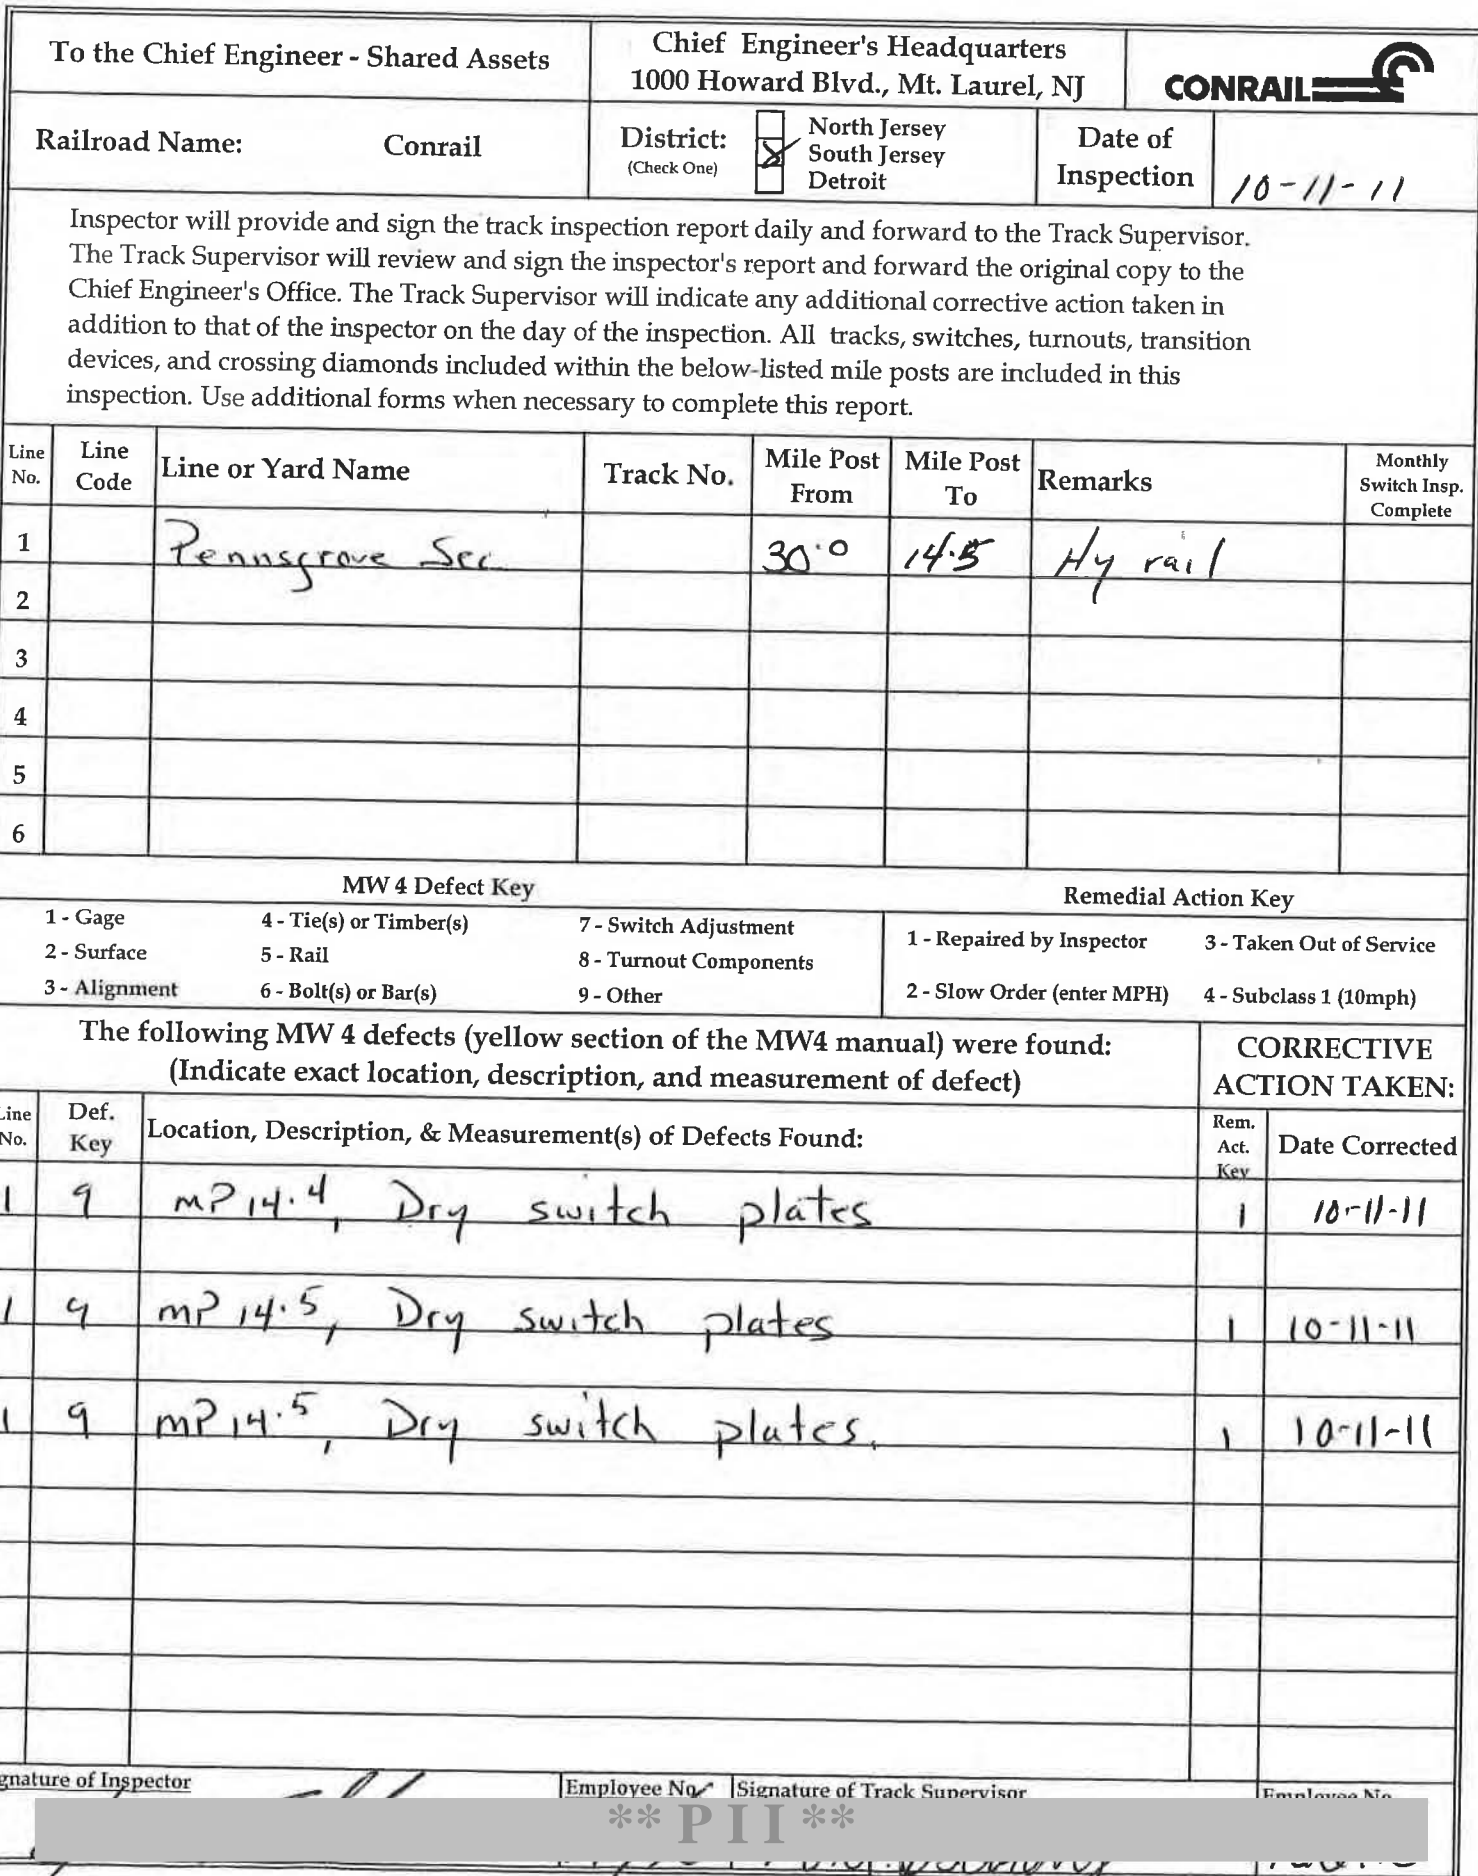 To the Chief Engineer - Shared Assets
Chief Engineer's Headquarters
1000 Howard Blvd., Mt. Laurel, NJ
CONRAIL
Railroad Name: Conrail
District:
(Check One)
North Jersey
South Jersey
Detroit
Date of
Inspection
10-11-11
Inspector will provide and sign the track inspection report daily and forward to the Track Supervisor.
The Track Supervisor will review and sign the inspector's report and forward the original copy to the
Chief Engineer's Office. The Track Supervisor will indicate any additional corrective action taken in
addition to that of the inspector on the day of the inspection. All tracks, switches, turnouts, transition
devices, and crossing diamonds included within the below-listed mile posts are included in this
inspection. Use additional forms when necessary to complete this report.
Line No. Line Code Line or Yard Name Track No. Mile Post From Mile Post To Remarks Monthly Switch Insp. Complete
1 Pennsgrove Sec 30.0 14.5 Hy rail
2
3
4
5
6
MW 4 Defect Key Remedial Action Key
1 - Gage 4 - Tie(s) or Timber(s) 7 - Switch Adjustment 1 - Repaired by Inspector 3 - Taken Out of Service
2 - Surface 5 - Rail 8 - Turnout Components
3 - Alignment 6 - Bolt(s) or Bar(s) 9 - Other 2 - Slow Order (enter MPH) 4 - Subclass 1 (10mph)
The following MW 4 defects (yellow section of the MW4 manual) were found:
(Indicate exact location, description, and measurement of defect)
CORRECTIVE
ACTION TAKEN:
Line No. Def. Key Location, Description, & Measurement(s) of Defects Found: Rem. Act. Key Date Corrected
1 9 MP 14.4, Dry switch plates 1 10-11-11
1 9 MP 14.5, Dry switch plates 1 10-11-11
1 9 MP 14.5, Dry switch plates. 1 10-11-11
gnature of Inspector Employee No Signature of Track Supervisor Employee No
** P I I **